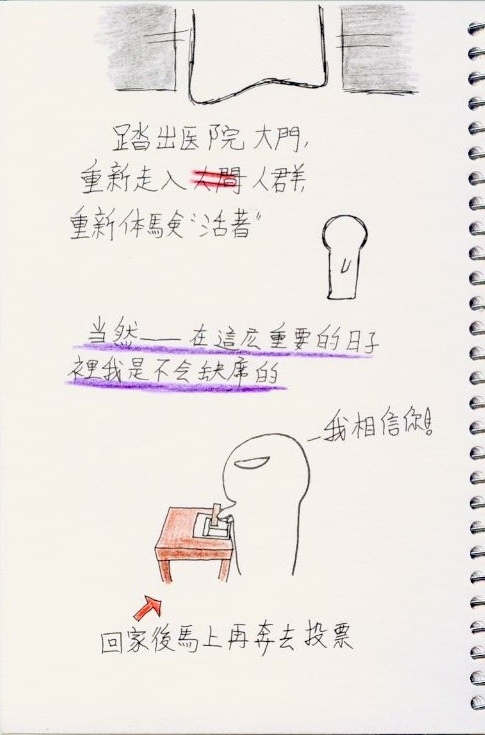 踏出医院大門,
重新走入人間人群,
重新体験“活著”
当然——在這広重要的日子
裡我是不会缺席的
—我相信你!
回家後馬上再奔去投票